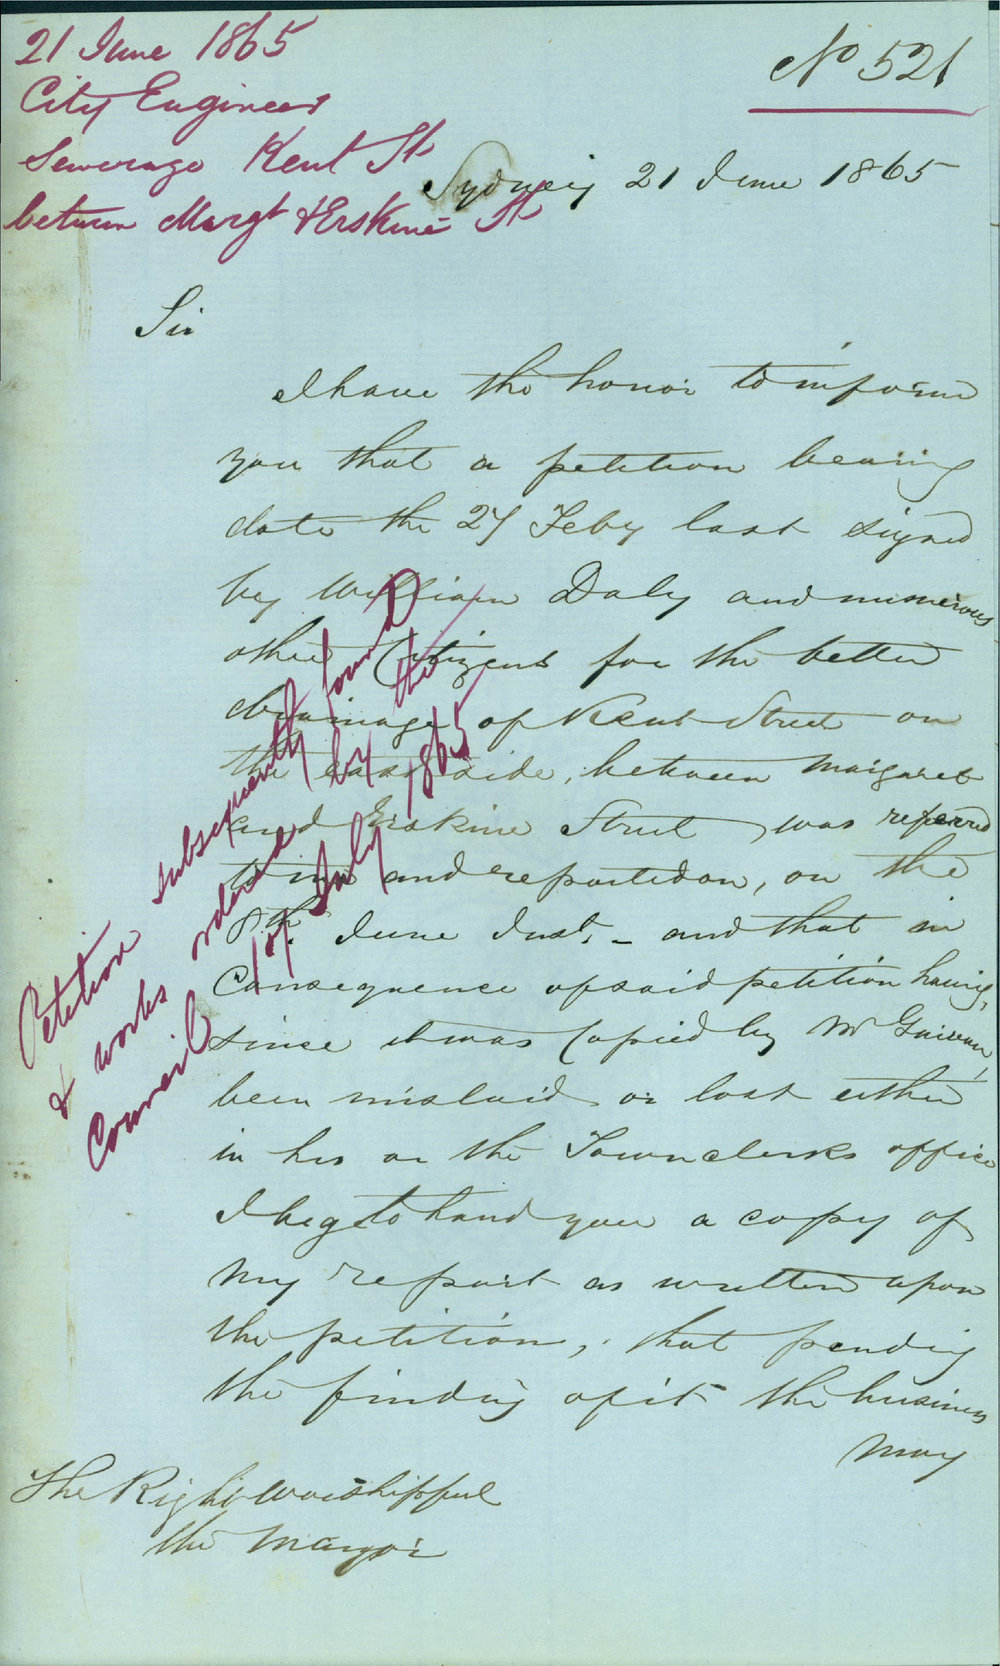 21 June 1865
City Engineer
Sewerage Kent St
between Margt & Erskine St
No 521
Sydney 21 June 1865
Sir
I have the honor to inform
you that a petition bearing
date the 27 Feby last signed
by William Daly and numerous
other Citizens for the better
drainage of Kent Street on
the east side, between Margaret
and Erskine Street, was referred
to me and reported on, on the
8th. June Inst, - and that in
Consequence of said petition having,
since it was Copied by Mr
been mislaid or lost either
in his or the Town clerks office
I beg to hand you a copy of
my report as written upon
the petition, that pending
the finding of it the business
may
The Right Worshipful
the Mayor
Petition subsequently found
& works ordered by the
Council 1of July 1865